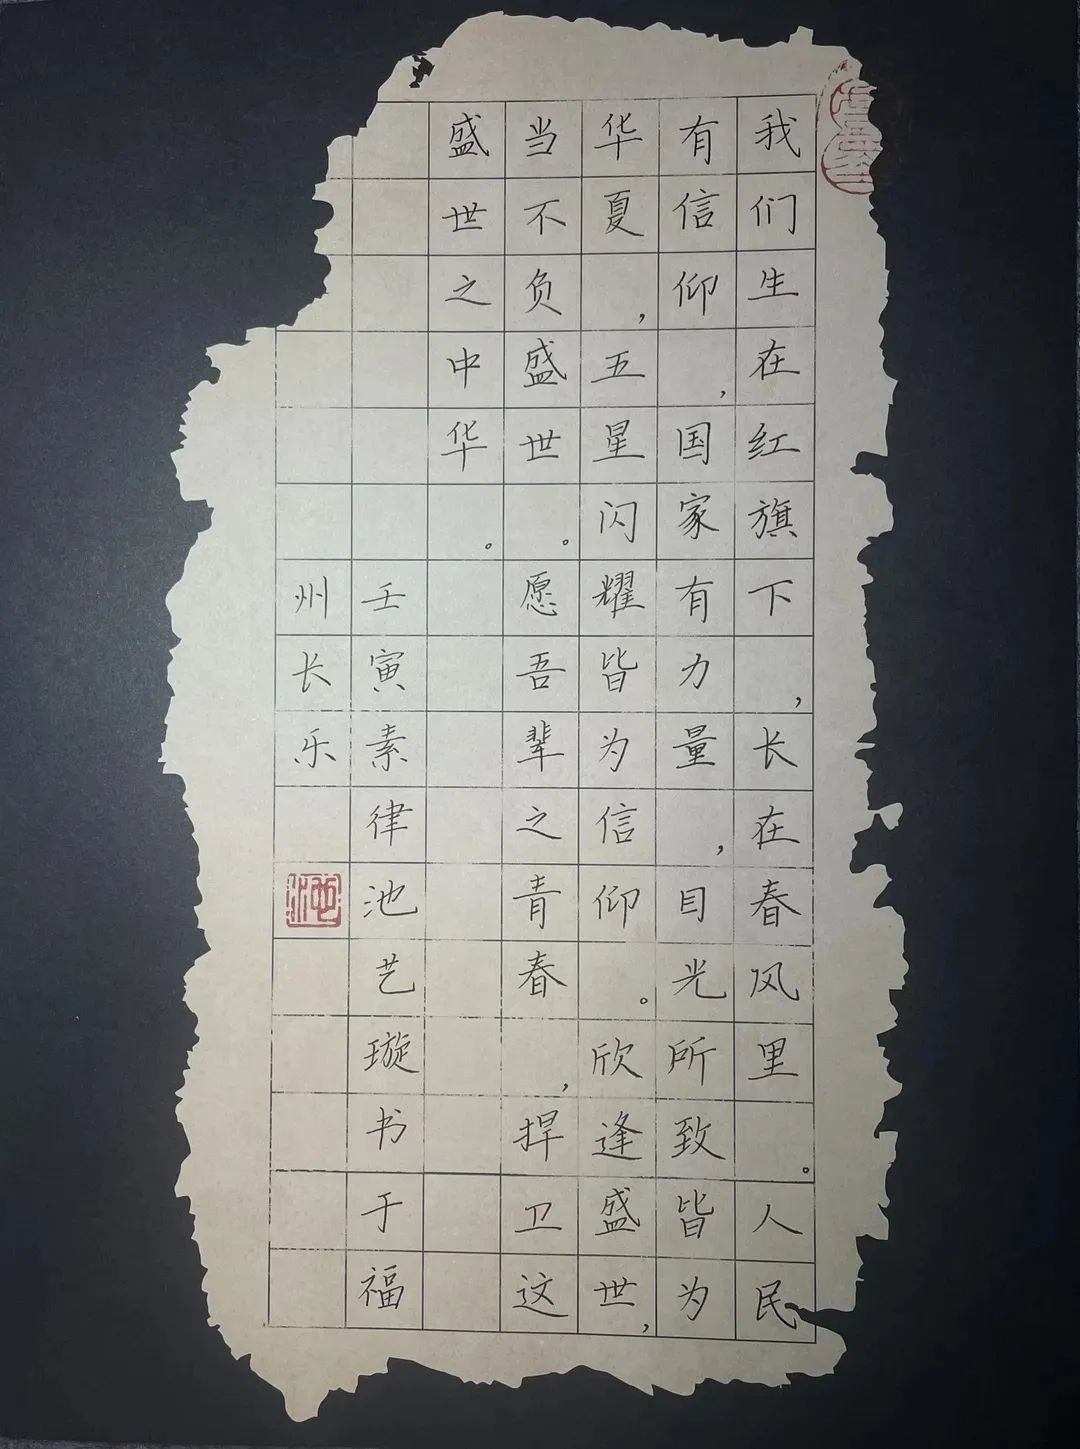 我们生在红旗下，长在春风里。人民
有信仰，国家有力量，目光所致皆为
华夏，五星闪耀皆为信仰。欣逢盛世，
当不负盛世。愿吾辈之青春，捍卫这
盛世之中华。
壬寅素律池艺璇书于福
州长乐
池